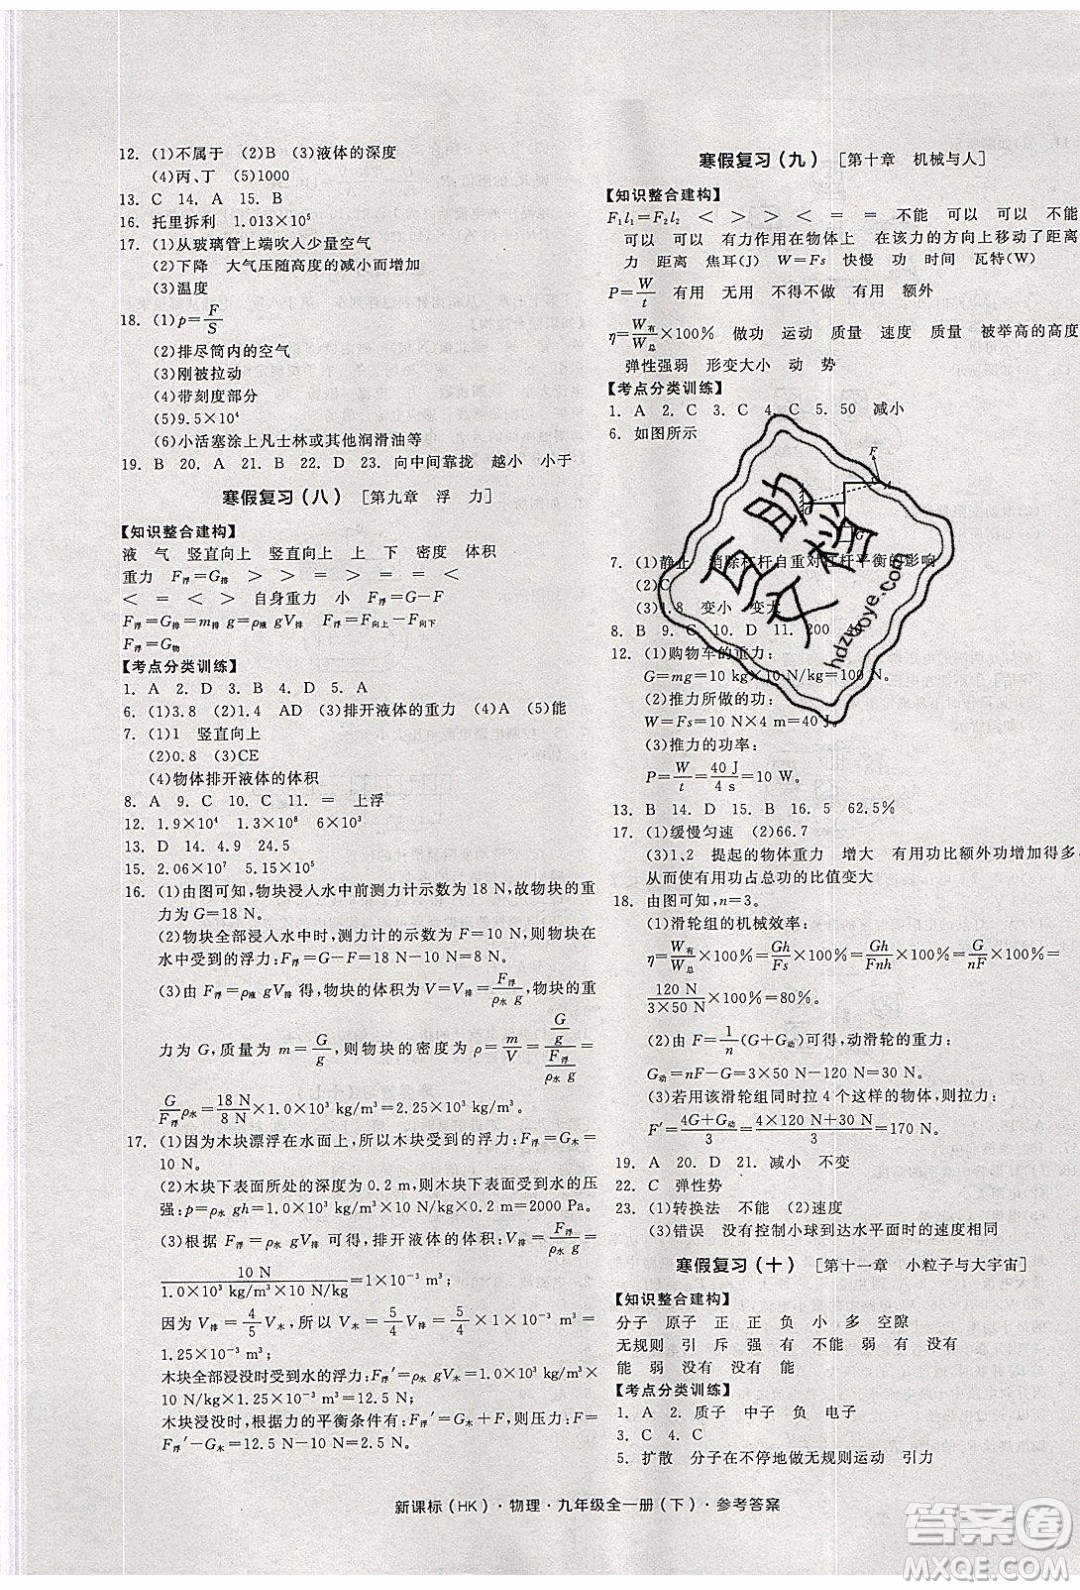 12. (1)不属于 (2)B (3)液体的深度
(4)丙、丁 (5)1000
13. C 14. A 15. C
16. 托里拆利 1.013×10⁵
17. (1)从玻璃管上端吹入少量空气
(2)下降 大气压随高度的减小而增加
(3)温度
18. (1)p=F/S
(2)排尽筒内的空气
(3)刚被拉动
(4)带刻度部分
(5)9.5×10⁴
(6)小活塞涂上凡士林或其他润滑油等
19. B 20. A 21. D 22. D 23. 向中间靠拢 越小 小于
寒假复习(八) [第九章 浮 力]
【知识整合建构】
液 气 竖直向上 竖直向上 上 下 密度 体积
重力 F浮=G排 > > = = = < <
< < = < > 自身重力 小 F浮=G-F
F浮=G排=m排 g=ρ液 gV排 F浮=F向上-F向下
F浮=G物
【考点分类训练】
1. A 2. D 3. B 4. D 5. D
6. (1)3.8 (2)1.4 AD (3)排开液体的重力 (4)A (5)能
7. (1)1 竖直向上
(2)0.8 (3)CE
(4)物体排开液体的体积
8. A 9. C 10. C 11. = 上浮
12. 1.9×10⁴ 1.3×10⁸ 6×10³
13. D 14. 4.9 24.5
15. 2.06×10⁷ 5.15×10³
16. (1)由图可知,物块浸入水中前测力计示数为 18 N,故物块的重
力为 G=18 N。
(2)物块全部浸入水中时,测力计的示数为 F=10 N,则物块在
水中受到的浮力:F浮=G-F=18 N-10 N=8 N。
(3)由 F浮=ρ液 gV排 得,物块的体积为 V=V排=F浮/(ρ水 g),物块的重
力为 G,质量为 m=G/g,则物块的密度为 ρ=m/V=(G/g)/(F浮/(ρ水 g))=
G/F浮 ρ水=18 N/8 N×1.0×10³ kg/m³=2.25×10³ kg/m³。
17. (1)因为木块漂浮在水面上,所以木块受到的浮力:F浮=G木=
10 N。
(2)木块下表面所处的深度为 0.2 m,木块下表面受到水的压
强:p=ρ水 gh=1.0×10³ kg/m³×10 N/kg×0.2 m=2000 Pa。
(3)根据 F浮=ρ水 gV排 可得,木块漂浮时,V排=F浮/(ρ水 g)=
10 N/(1.0×10³ kg/m³×10 N/kg)=1×10⁻³ m³;
因为 V排=4/5 V木,所以 V木=5/4 V排=5/4×1×10⁻³ m³=
1.25×10⁻³ m³;
木块全部浸没时受到水的浮力:F浮′=ρ水 gV木=1.0×10³ kg/m³×
10 N/kg×1.25×10⁻³ m³=12.5 N;
木块浸没时,根据力的平衡条件有:F浮′=G木+F,则压力:F=
F浮′-G木=12.5 N-10 N=2.5 N。
寒假复习(九) [第十章 机械与人]
【知识整合建构】
F₁l₁=F₂l₂ < > > < = = 不能 可以 可以 不能
可以 可以 有力作用在物体上 在该力的方向上移动了距离
力 距离 焦耳(J) W=Fs 快慢 功 时间 瓦特(W)
P=W/t 有用 无用 不得不做 有用 额外
η=W有/W总×100% 做功 运动 质量 速度 质量 被举高的高度
弹性强弱 形变大小 动 势
【考点分类训练】
1. A 2. C 3. C 4. C 5. 50 减小
6. 如图所示
F
A
O
G
7. (1)静止 消除杠杆自重对杠杆平衡的影响
(2)C
(3)1.8 变小 变大
8. B 9. C 10. D 11. 200
12. (1)购物车的重力:
G=mg=10 kg×10 N/kg=100 N。
(2)推力所做的功:
W=Fs=10 N×4 m=40 J。
(3)推力的功率:
P=W/t=40 J/4 s=10 W。
13. B 14. D 15. B 16. 5 62.5%
17. (1)缓慢匀速 (2)66.7
(3)1、2 提起的物体重力 增大 有用功比额外功增加得多,
从而使有用功占总功的比值变大
18. 由图可知,n=3。
(1)滑轮组的机械效率:
η=W有/W总×100%=Gh/Fs×100%=Gh/Fnh×100%=G/nF×100%=
120 N/(3×50 N)×100%=80%。
(2)由 F=1/n(G+G动)可得,动滑轮的重力:
G动=nF-G=3×50 N-120 N=30 N。
(3)若用该滑轮组同时拉 4 个这样的物体,则拉力:
F′=(4G+G动)/3=(4×120 N+30 N)/3=170 N。
19. A 20. D 21. 减小 不变
22. C 弹性势
23. (1)转换法 不能 (2)速度
(3)错误 没有控制小球到达水平面时的速度相同
寒假复习(十) [第十一章 小粒子与大宇宙]
【知识整合建构】
分子 原子 正 正 负 小 多 空隙
无规则 引 斥 强 有 不能 弱 有 没有
能 弱 没有 没有 能
【考点分类训练】
1. A 2. 质子 中子 负 电子
3. C 4. C
5. 扩散 分子在不停地做无规则运动 引力
互助文档
hdzuoye.com
新课标(HK)·物理·九年级全一册(下)·参考答案
答案圈
MXQE.COM